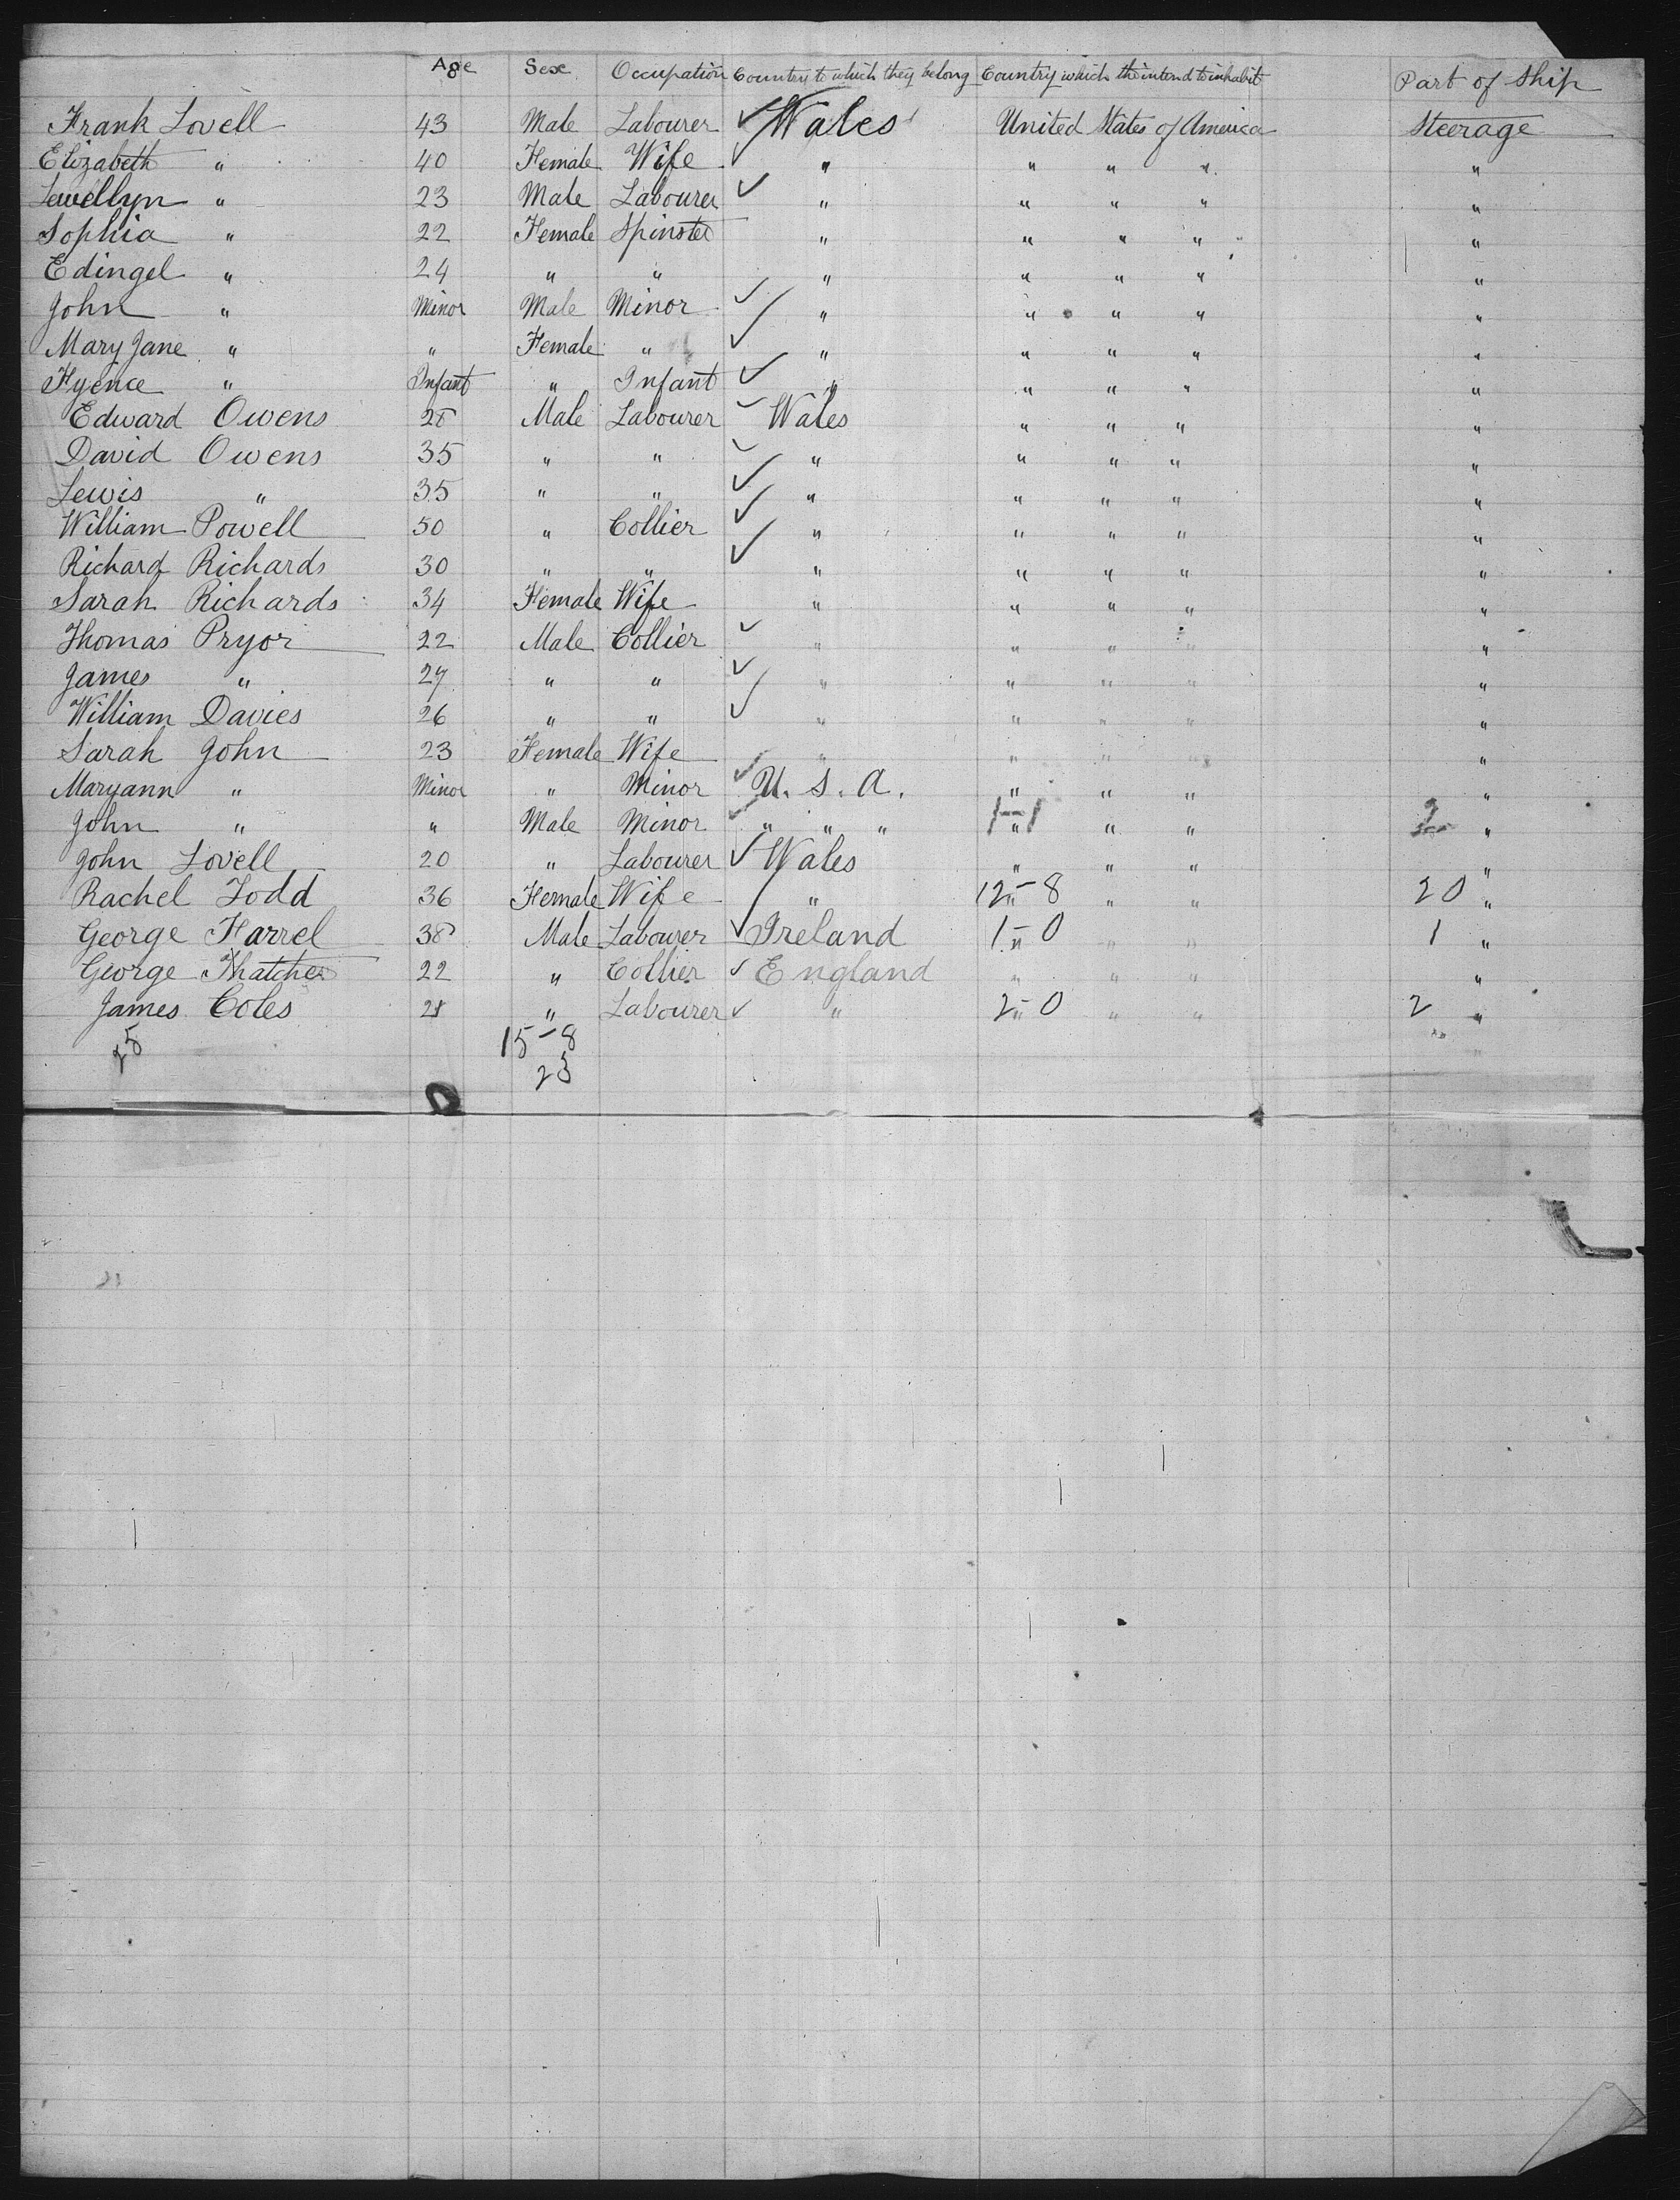 Age Sex Occupation Country to which they belong Country which the intend to inhabit Part of Ship
Frank Lovell 43 Male Labourer Wales United States of America Steerage
Elizabeth " 40 Female Wife " " " " "
Lewellyn " 23 Male Labourer " " " " "
Sophia " 22 Female Spinster " " " " "
Edingel " 24 " " " " " " "
John " Minor Male Minor " " " " "
Mary Jane " " Female " " " " " "
Hyence " Infant " Infant " " " " "
Edward Owens 28 Male Labourer Wales " " " "
David Owens 35 " " " " " " "
Lewis " 35 " " " " " " "
William Powell 50 " Collier " " " " "
Richard Richards 30 " " " " " " "
Sarah Richards 34 Female Wife " " " " "
Thomas Pryor 22 Male Collier " " " " "
James " 27 " " " " " " "
William Davies 26 " " " " " " "
Sarah John 23 Female Wife " " " " "
Maryann " Minor " Minor U. S. A. " " " "
John " " Male Minor " " " 1-1 " " " 2 "
John Lovell 20 " Labourer Wales " " " "
Rachel Todd 36 Female Wife " 12-8 " " " 20 "
George Farrel 38 Male Labourer Ireland 1-0 " " " 1 "
George Thatcher 22 " Collier England " " " "
James Coles 28 " Labourer " 2-0 " " " 2 "
25 15-8
23